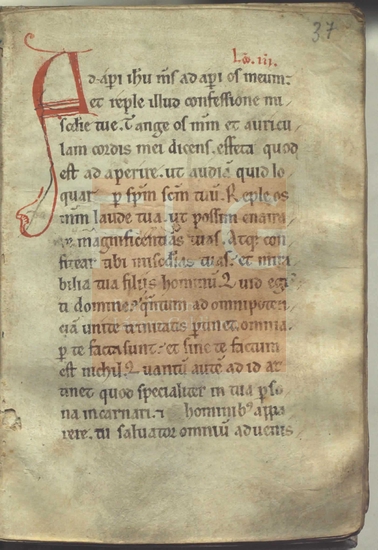 37
Lo. iii.
Ad. api ihu mis ad api os meum.
et reple illud confessione mi
scdie tue. Tange os mm et auricu
lam cordis mei dicens. effeta quod
est ad aperire. ut audiā quid lo
quar p spm scm tuū. Reple os
mm laude tua. ut possim enarra
magnificentiās tuas. Atq; con
fitear tibi miscdias tuas. et mira
bilia tua filiis hominū. Quid egi
ti domine qntum ad omnipoten
ciā unite trinitatis ptinet. omnia
p te facta sunt. et sine te factum
est nichil. Quantū autē ad id at
tinet quod specialiter in tua pso
na incarnati. hominib; appa
rere. tu salvator omniū advenis